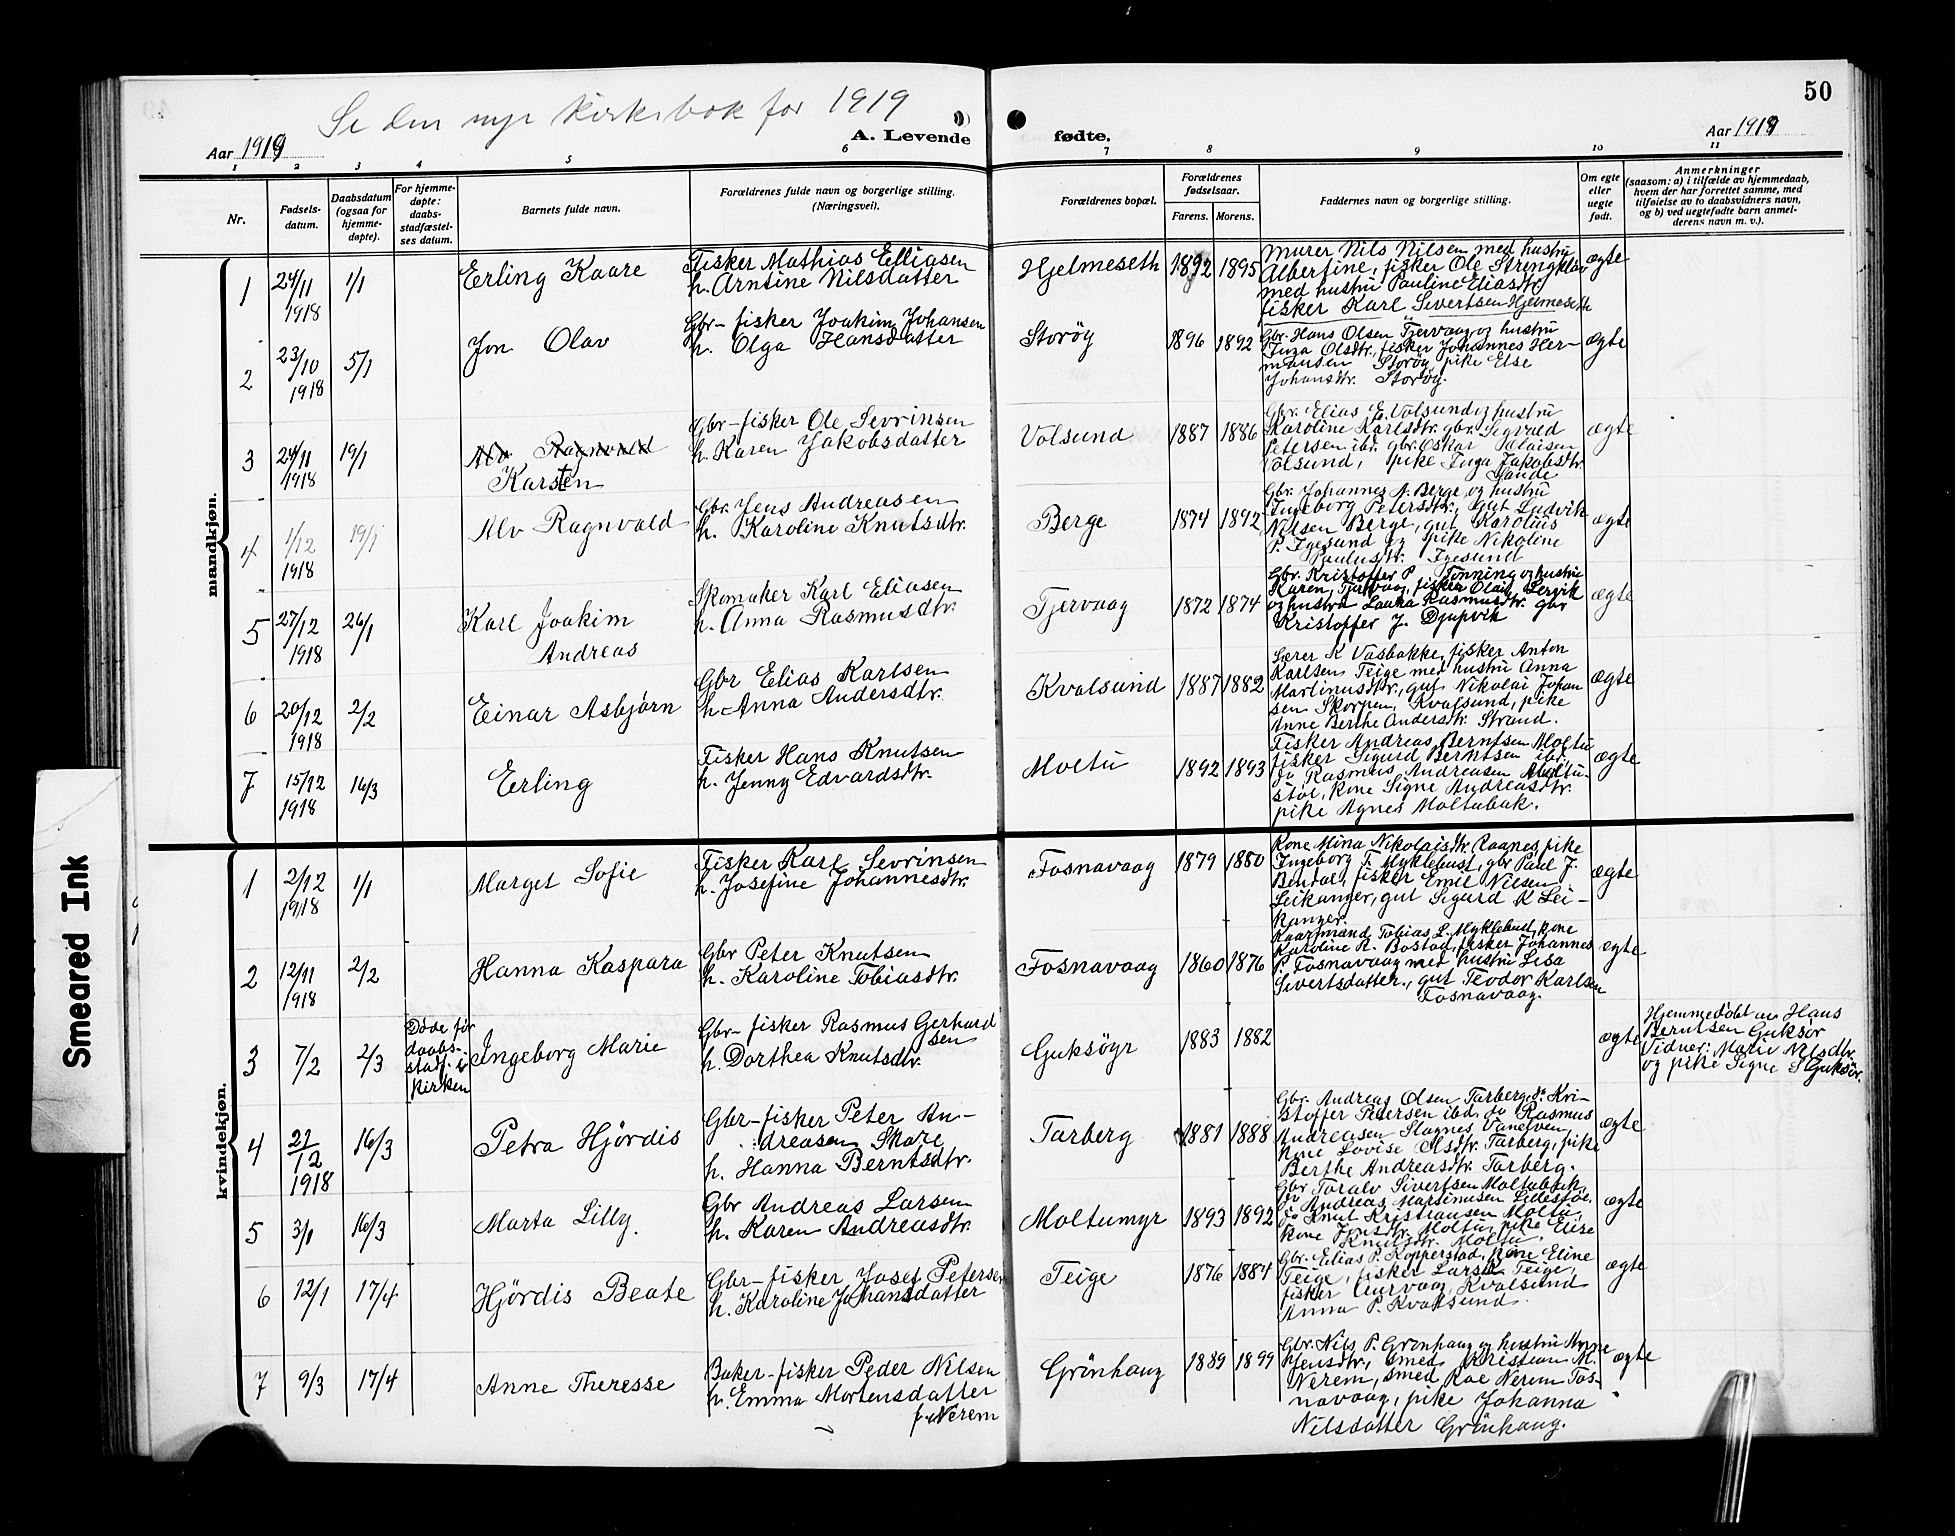 Se den nye kirkebok for 1919
50
Aar 1919
A. Levende fødte.
Aar 1919
1 2 3 4 5 6 7 8 9 10 11
Nr.
Fødsels-
datum.
Daabsdatum
(ogsaa for
hjemme-
døpte).
For hjemme-
døpte:
daabs-
stadfæstel-
ses datum.
Barnets fulde navn.
Forældrenes fulde navn og borgerlige stilling.
(Næringsvei).
Forældrenes bopæl.
Forældrenes
fødselsaar.
Farens. Morens.
Faddernes navn og borgerlige stilling.
Om egte
eller
uegte
født.
Anmerkninger
(saasom: a) i tilfælde av hjemmedaab,
hvem der har forrettet samme, med
tilføielse av to daabsvidners navn,
og b) ved uegtefødte barn anmel-
derens navn m. v.).
mandkjøn.
1 24/11 1918 1/1
Erling Kaare
Fisker Mathias Elliasen
h. Arntine Nilsdatter
Hjelmeseth 1892 1895
Murer Nils Nilsen med hustru
Albertine, fisker Ole Strengklav
med hustru Pauline Eliasdtr.
fisker Karl Sivertsen Hjelmeseth
ægte
2 23/10 1918 5/1
Jon Olav
Gbr-fisker Joakim Johansen
h. Olga Hansdatter
Storøy 1896 1892
Gbr. Hans Olsen Tjervaag og hustru
Inga Olsdtr., fisker Johannes Her-
mansen Storøy pike Else
Johansdtr. Storøy.
ægte
3 24/11 1918 19/1
Alv Ragnvald
Karsten
Gbr-fisker Ole Sevrinsen
h. Karen Jakobsdatter
Volsund 1887 1886
Gbr. Elias E. Volsund og hustru
Karoline Karlsdtr. gbr. Sigvald
Petersen ibd. gbr. Oskar
Volsund, pike Inga Jakobsdtr.
ægte
4 1/12 1918 19/1
Alv Ragnvald
Gbr. Jens Andreasen
h. Karoline Knutsdtr.
Berge 1874 1892
Gbr. Johannes A. Berge og hustru
Ingeborg Petersdtr., gut Ludvik
Nilsen Berge, gut Karolius
P. Igesund og pike Nikoline
Paulusdtr. Igesund
ægte
5 27/12 1918 26/1
Karl Joakim
Andreas
Skomaker Karl Eliasen
h. Anna Rasmusdtr.
Tjervaag 1872 1874
Gbr. Kristoffer P. Tønning og hustru
Karen, Tjervaag, fisker Olav Lervik
og hustru Laura Rasmusdtr. gbr
Kristoffer J. Djupvik
ægte
6 20/12 1918 2/2
Einar Asbjørn
Gbr Elias Karlsen
h. Anna Andersdtr.
Kvalsund 1887 1882
Lærer K Vasbakke, fisker Anton
Karlsen Teige med hustru Anna
Martinusdtr., gut Nikolai Johan
sen Skorpen, Kvalsund, pike
Anne Berthe Andersdtr. Strand.
ægte
7 15/12 1918 16/3
Erling
Fisker Hans Knutsen
h. Jenny Edvardsdtr.
Moltu 1892 1893
Fisker Andreas Berntsen Moltu
fisker Sigurd Berntsen ibd.
do Rasmus Andreasen Moltu-
støl, kone Signe Andreasdtr.
pike Agnes Moltubak.
ægte
kvindekjøn.
1 2/12 1918 1/1
Marget Sofie
Fisker Karl Sevrinsen
h. Josefine Johannesdtr.
Fosnavaag 1879 1880
Kone Mina Nikolaisdtr. Raanes, pike
Ingeborg T. Myklebust, gbr Paul J.
Bendal, fisker Emil Nilsen
Leikanger, gut Sigurd K Lei-
kanger.
ægte
2 12/11 1918 2/2
Hanna Kaspara
Gbr Peter Knutsen
h. Karoline Tobiasdtr.
Fosnavaag 1860 1876
Kaarmand Tobias L. Myklebust, kone
Karoline R. Bostad, fisker Johannes
P. Fosnavaag med hustru Lisa
Sivertsdatter, gut Teodor Karlsen
Fosnavaag.
ægte
3 7/2 2/3
Døde før
daabs-
stadf. i
kirken
Ingeborg Marie
Gbr-fisker Rasmus Gerhard
sen
h. Dorthea Knutsdtr.
Guksøyr 1883 1882
ægte
Hjemmedøbt av Hans
Berntsen Guksør
Vidner: Marie Nilsdtr.
og pike Signe S Guksør.
4 21/12 1918 16/3
Petra Hjørdis
Gbr-fisker Peter An-
dreasen Skare
h. Hanna Berntsdtr.
Tarberg 1881 1888
Gbr. Andreas Olsen Tarberg, do Kri-
stoffer Petersen ibd. do Rasmus
Andreasen Slagnes Vanelven
kone Lovise Olsdtr. Tarberg, pike
Berthe Andreasdtr. Tarberg.
ægte
5 3/1 16/3
Marta Lilly.
Gbr Andreas Larsen
h. Karen Andreasdtr.
Moltumyr 1893 1892
Gbr Toralv Sivertsen Moltubak,
do Andreas Martinusen Lidestøl
do Knut Kristiansen Moltu,
kone Jonsdtr. Moltu, pike Elise
Knutsdtr. Moltu.
ægte
6 12/1 17/4
Hjördis Beate
Gbr-fisker Josef Petersen
h. Karoline Johansdatter
Teige 1876 1884
Gbr. Elias P. Kopperstad, kone Eline
Teige, fisker Lars K Teige,
fisker Aurvaag, Kvalsund
Anna P. Kvalsund
ægte
7 9/3 17/4
Anne Theresse
Baker-fisker Peder Nilsen
h. Emma Mortensdatter
f. Nerem
Grönhaug 1889 1899
Gbr. Nils P. Grønhaug og hustru Anne
Jensdtr, smed Kristian M.
Nerem, smed Roe Nerem Fos-
navaag, pike Johanna
Nilsdatter Grönhaug.
ægte
Smeared Ink